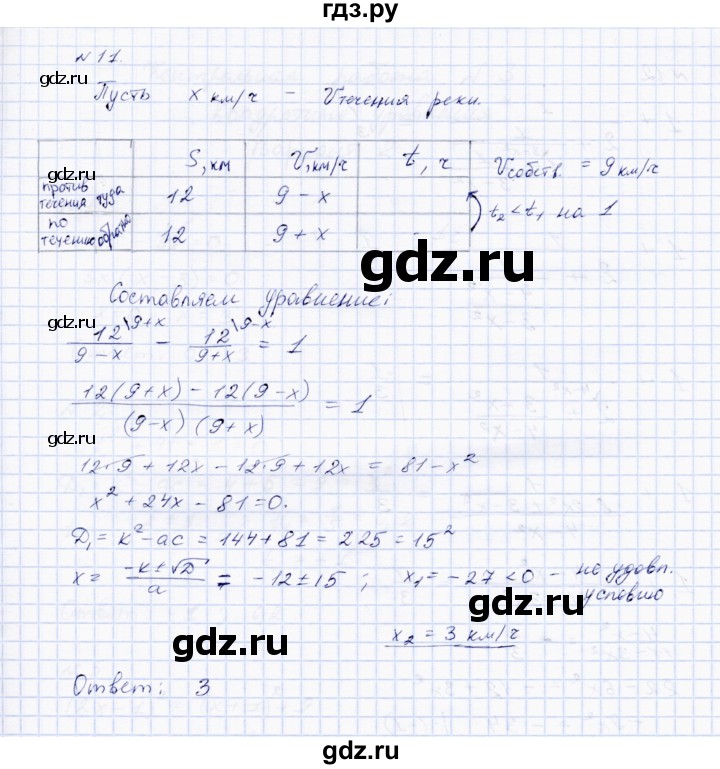 гдз.ру
№11.
Пусть x км/ч – Vтечения реки.
S, км V, км/ч t, ч
против течения туда 12 9 – x
по течению обратно 12 9 + x -
Vсобств. = 9 км/ч
t₂ < t₁ на 1
gdz.ru
gdz.ru
Составляем уравнение:
12\9+x / 9–x – 12\9–x / 9+x = 1
12(9+x) – 12(9–x) / (9–x) (9+x) = 1
gdz.ru
gdz.ru
12·9 + 12x – 12·9 + 12x = 81 – x²
x² + 24x – 81 = 0.
D₁ = k² – ac = 144 + 81 = 225 = 15²
x = –k ± √D / a = –12 ± 15 ; x₁ = –27 < 0 – не удовл. условию
gdz.ru
gdz.ru
x₂ = 3 км/ч
Ответ: 3
gdz.ru
gdz.ru